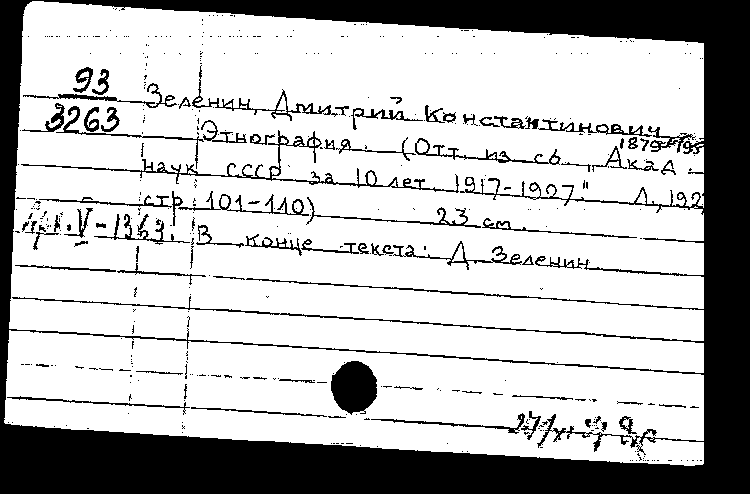 93
3263
Зеленин, Дмитрий Константинович
1879-195
Этнография. (Отт. из сб. „Акад.
наук СССР за 10 лет. 1917-1927." Л., 192
стр. 101-110) 23 см.
V-1363.
В конце текста: Д. Зеленин